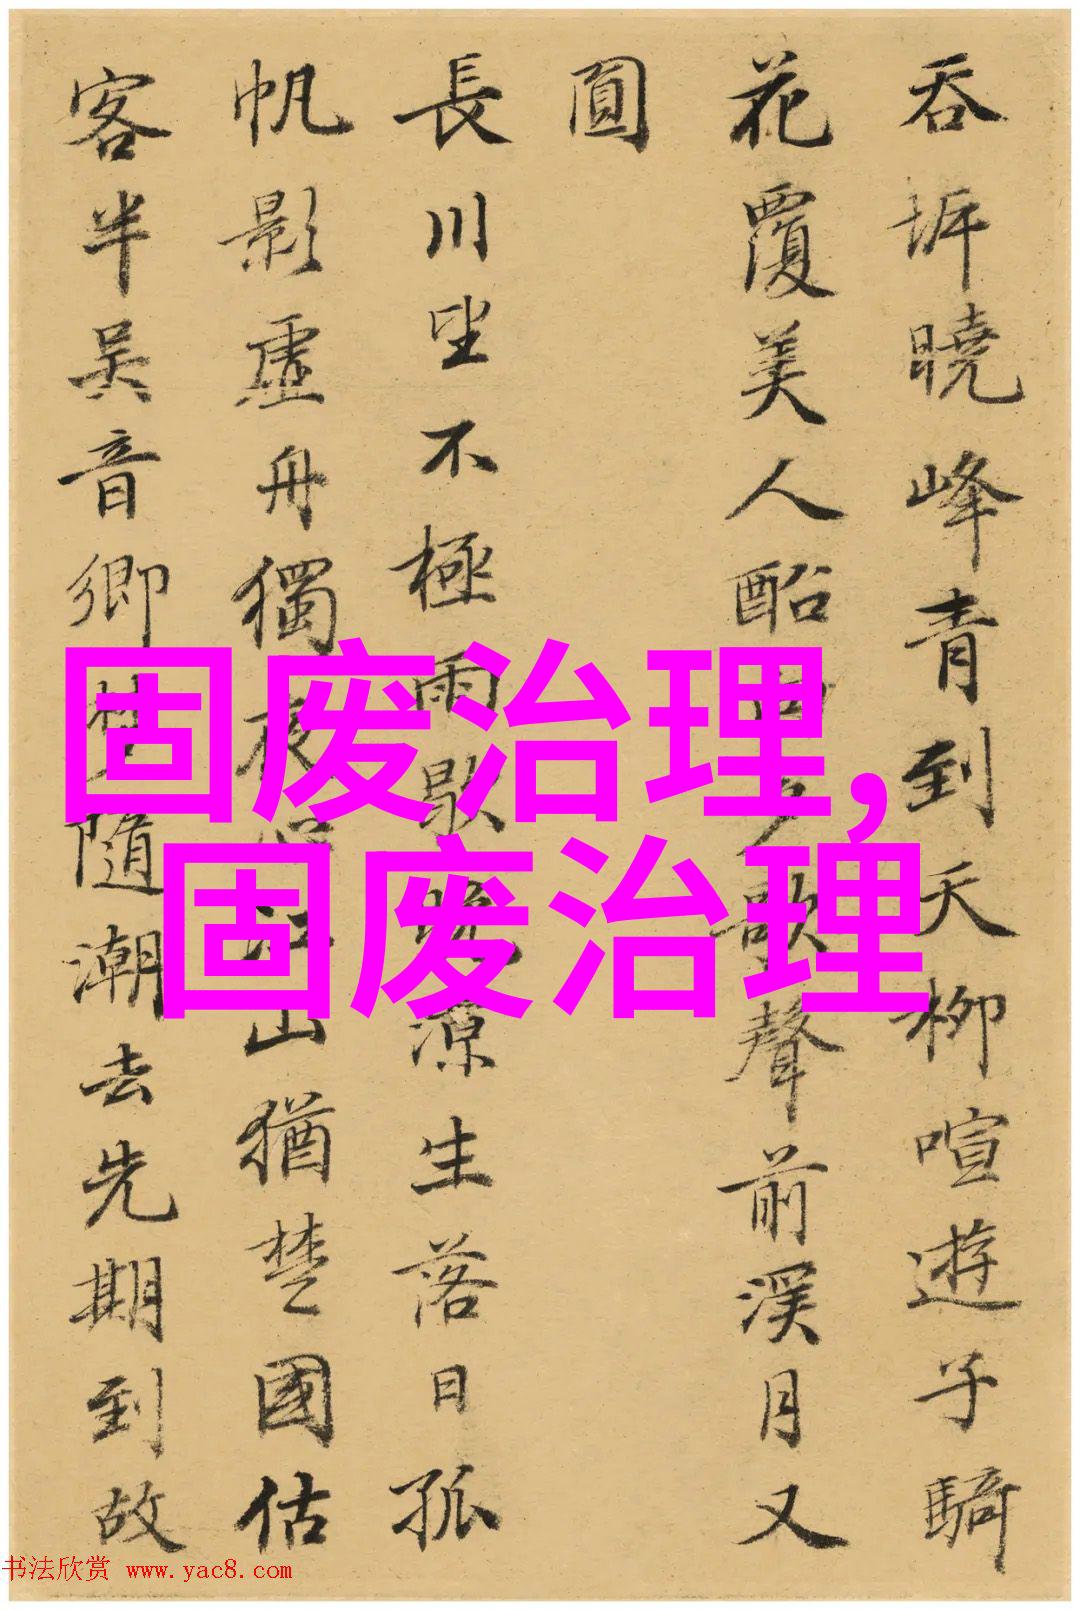 吞坼曉峰青到天柳喧遊子騎
花覆美人酩歌聲前溪月又
圓
長川坐不極雨歇晚涼生落日孤
帆影虛舟獨夜江山猶楚國估
客半吳音鄉隨潮去先期到故
固废治理,
固废治理
书法欣赏 www.yac8.com